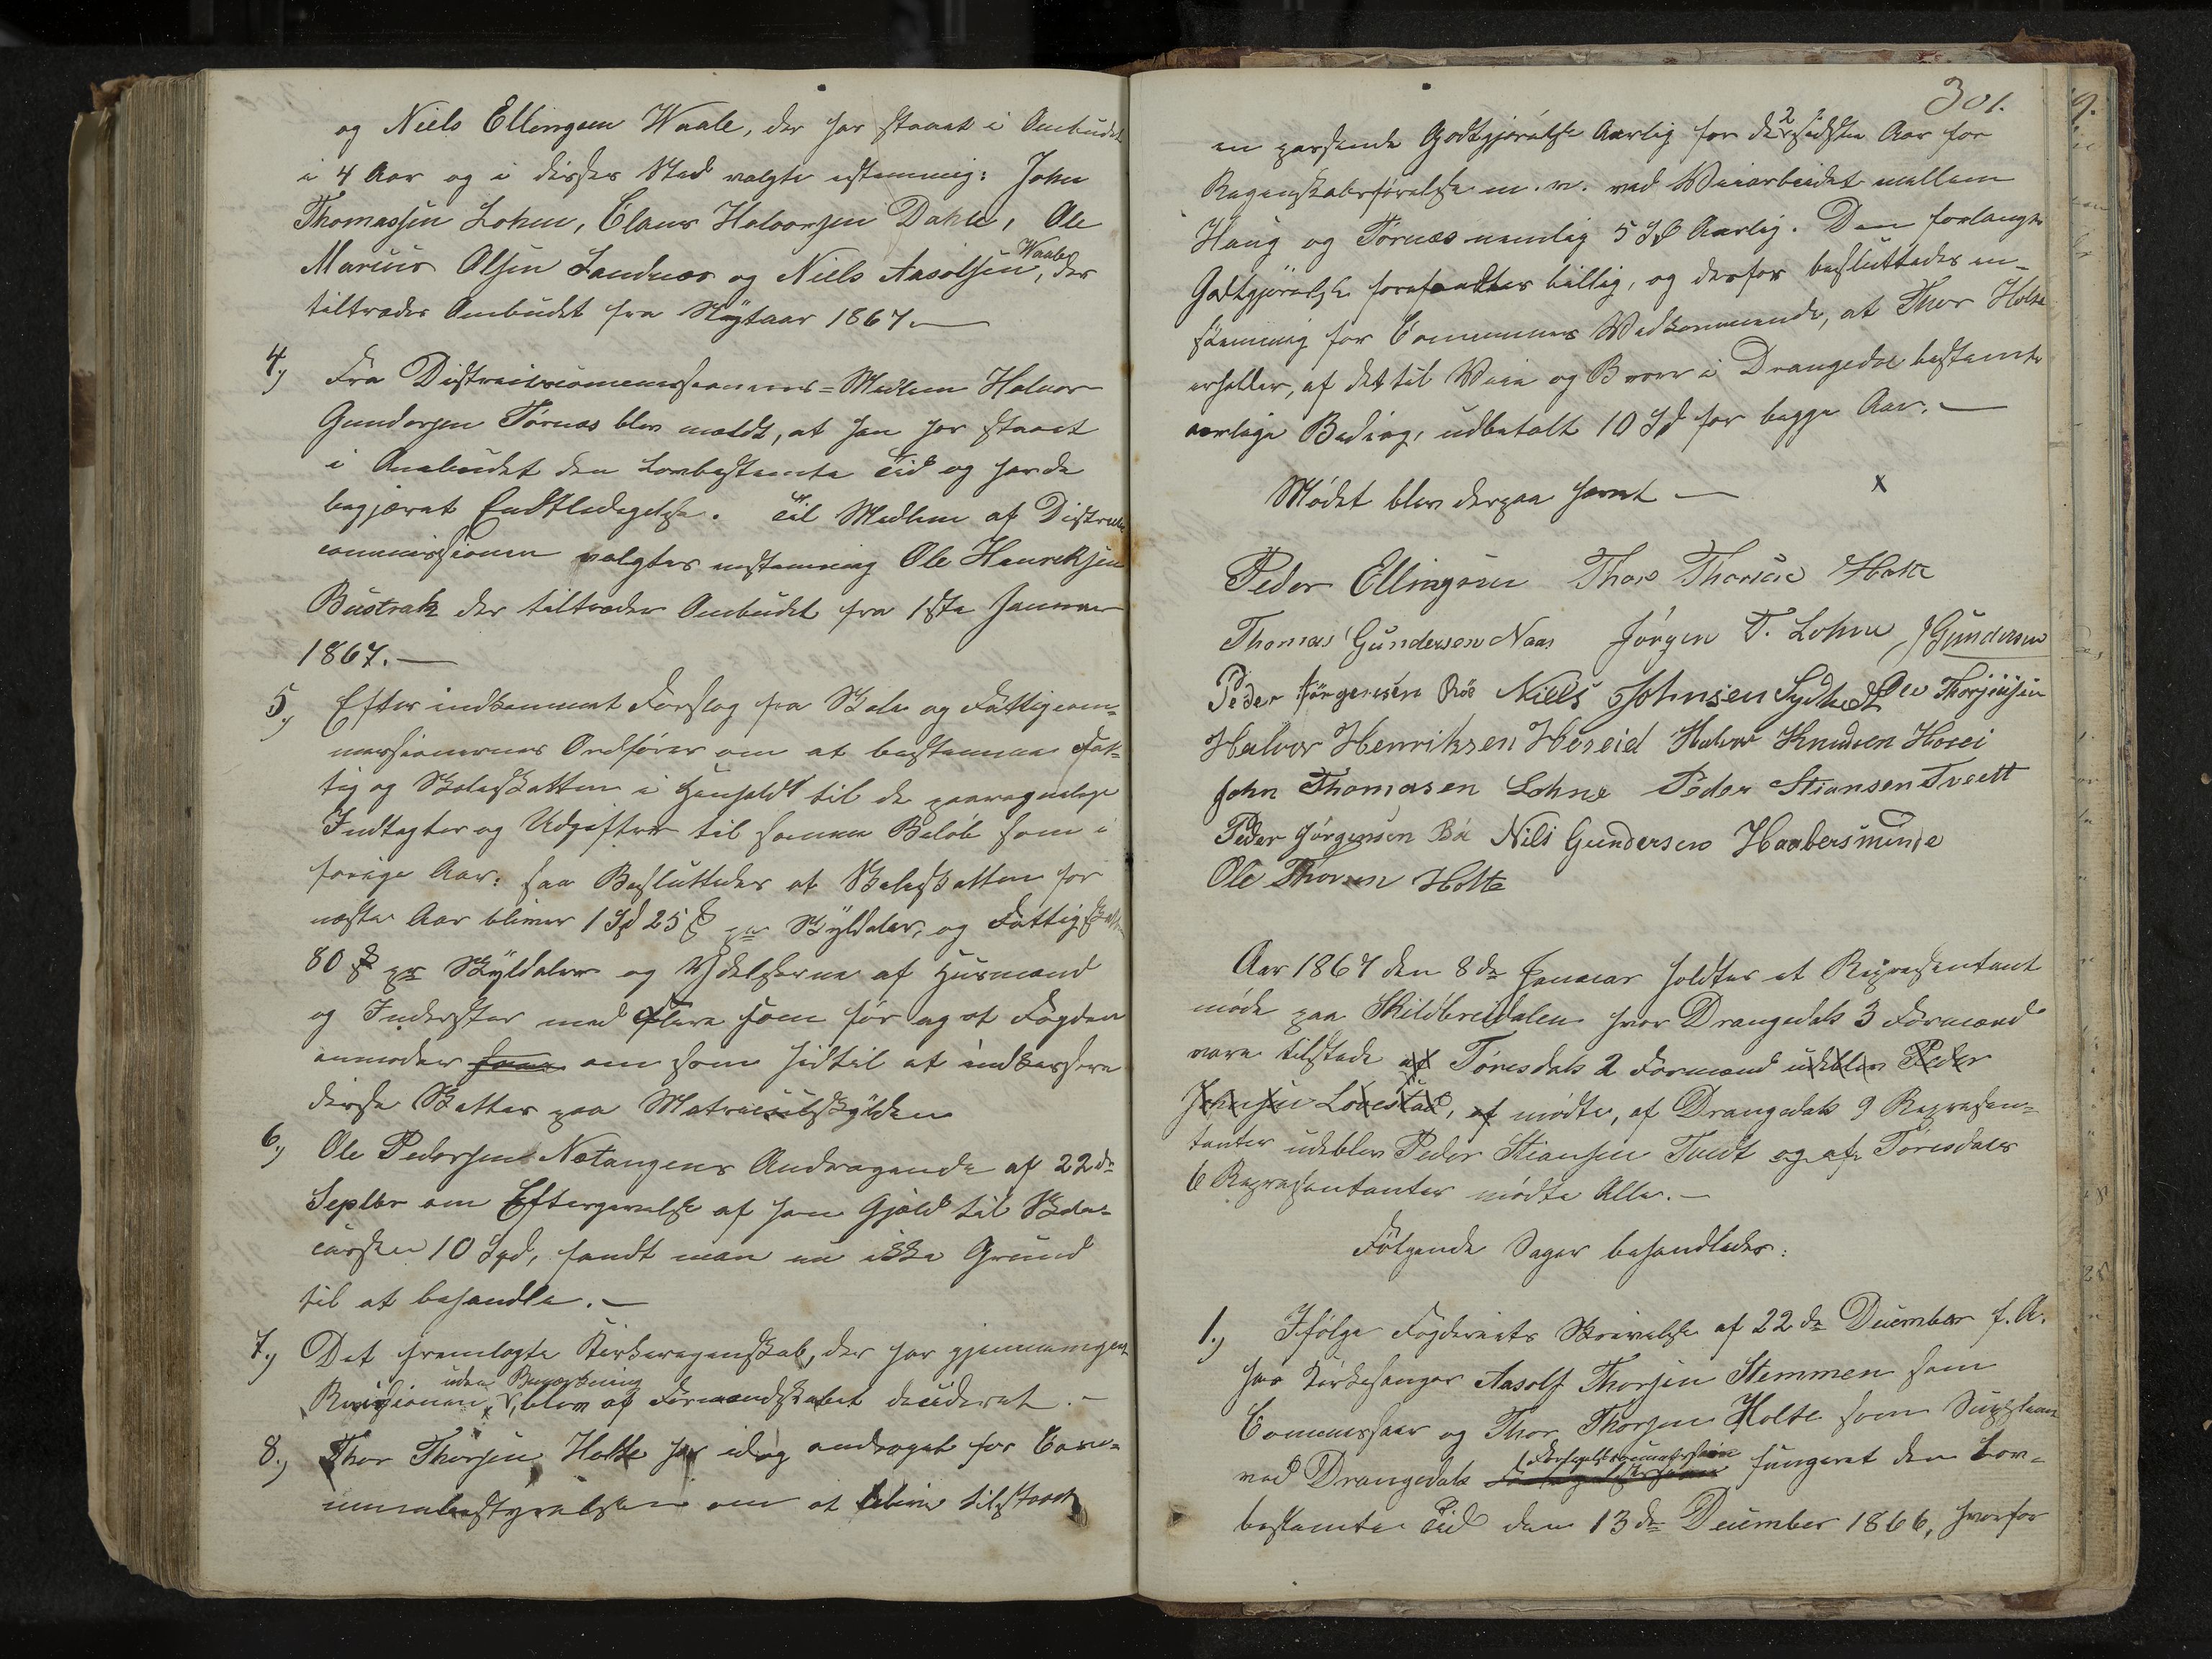 og Niels Ellingsen Waale, der har staaet i Ombudet
i 4 Aar og i disses Sted valgtes enstemmig: John
Thomassen Lohne, Claus Halvorsen Dahle, Ole
Marius Olsen Sandnæs og Niels Aasolfsen Waale, der
tiltræder Ombudet fra Nytaar 1867.—
4,) Fra Districtscommissionens-Medlem Halvor
Gundersen Tørnæs blev meldt, at han har staaet
i Ombudet den lovbestemte Tid og havde
begjæret Endtledigelse. Til Medlem af Districts
commissionen valgtes enstemmig Ole Henriksen
Bustrak der tiltræder Ombudet fra 1ste Januar
1867.—
5,) Efter indkommet Forslag fra Skole og Fattigcom-
missionernes Ordfører om at bestemme Fat-
tig og Skoleskatten i Henhold til de paaregnelige
Indtægter og Udgifter til samme Beløb som i
forige Aar: saa Besluttedes at Skoleskatten for
næste Aar bliver 1 Spd 25 ß pr Skylddaler, og Fattigskatten
80 ß pr Skylddaler og Ydelserne af Husmænd
og Inderster med Flere som før og at Fogden
anmodes om som hidtil at indkassere
disse Skatter paa Matriculskylden
6,) Ole Pedersen Nætangens Andragende af 22de
Septbr om Eftergivelse af hans Gjæld til Skole-
cassen 10 Spd, fandt man nu ikke Grund
til at behandle.—
7,) Det fremlagte Kirkeregnskab, der har gjennemgaaet
Revisionen uden Bemærkning, blev af Formandskabet decideret.—
8,) Thor Thorsen Holte har idag andraget for Com-
munebestyrelsen om at blive tilstaaet
301.
en passende Godtgjørelse Aarlig for de 2 sidste Aar for
Regnskabsførelse m. v. ved Veiarbeidet mellem
Haug og Tørnæs nemlig 5 Spd Aarlig. Den forlangte
Godtgjørelse forefandtes billig, og derfor besluttedes en-
stemmig for Communens Vedkommende, at Thor Holte
erholder, af det til Veie og Broer i Drangedal bestemte
aarlige Bidrag, udbetalt 10 Spd for begge Aar.—
Mødet blev derpaa hævet — x
Peder Ellingsen Thor Thorsen Holte
Thomas Gundersen Naas Jørgen T. Lohne J Gundersen
Peder Jørgensen Bøe Niels Johnsen Sydhedt Ole Thorjussen
Halvor Henriksen Hereid Halvor Knudsen Horei
John Thomasen Lohne Peder Stiansen Tveitt
Peder Jørgensen Bøe Nils Gundersen Haabersminde
Ole Thorsen Holte
Aar 1867 den 8de Januar holdtes et Representant
møde paa Skilbreidalen hvor Drangedals 3 Formænd
vare tilstede af Tørrisdals 2 Formænd udeblev Peder
Jensen Lovestad, af mødte, af Drangedals 9 Represen-
tanter udeblev Peder Stiansen Tvedt og af Tørrisdals
6 Representanter mødte Alle.—
Følgende Sager behandledes:
1,) Ifølge Fogderiets Skrivelse af 22de December f. A.
har Kirkesanger Aasolf Thorsen Stemmen som
Commissær og Thor Thorsen Holte som Suppleant
ved Drangedals Forligelsescommission fungeret den Lov-
bestemte Tid den 13de December 1866, hvorfor